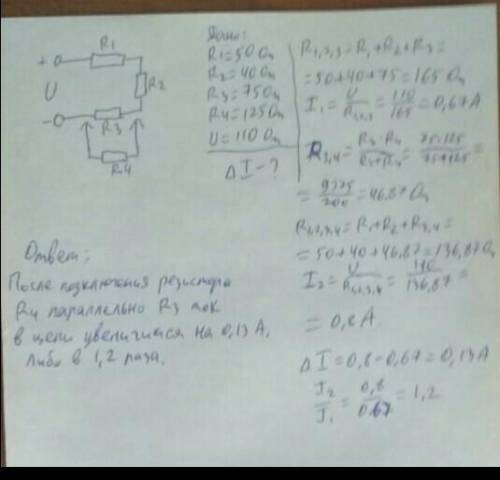 + R1
R2
U
- R3
R4
Дано:
R1=50 Ом
R2=40 Ом
R3=75 Ом
R4=125 Ом
U=110 Ом
ΔI-?
R1,2,3=R1+R2+R3=
=50+40+75=165 Ом
I1=U/R1,2,3=110/165=0,67 А
R3,4=R3·R4/R3+R4=75·125/75+125=
=9375/200=46.87 Ом
R1,2,3,4=R1+R2+R3,4=
=50+40+46,87=136,87 Ом
I2=U/R1,2,3,4=110/136,87=
=0,8 А
ΔI=0,8-0,67=0,13 А
I2/I1=0,8/0,67=1,2
Ответ:
После подключения резистора
R4 параллельно R3 ток
в цепи увеличился на 0,13 А,
либо в 1,2 раза.